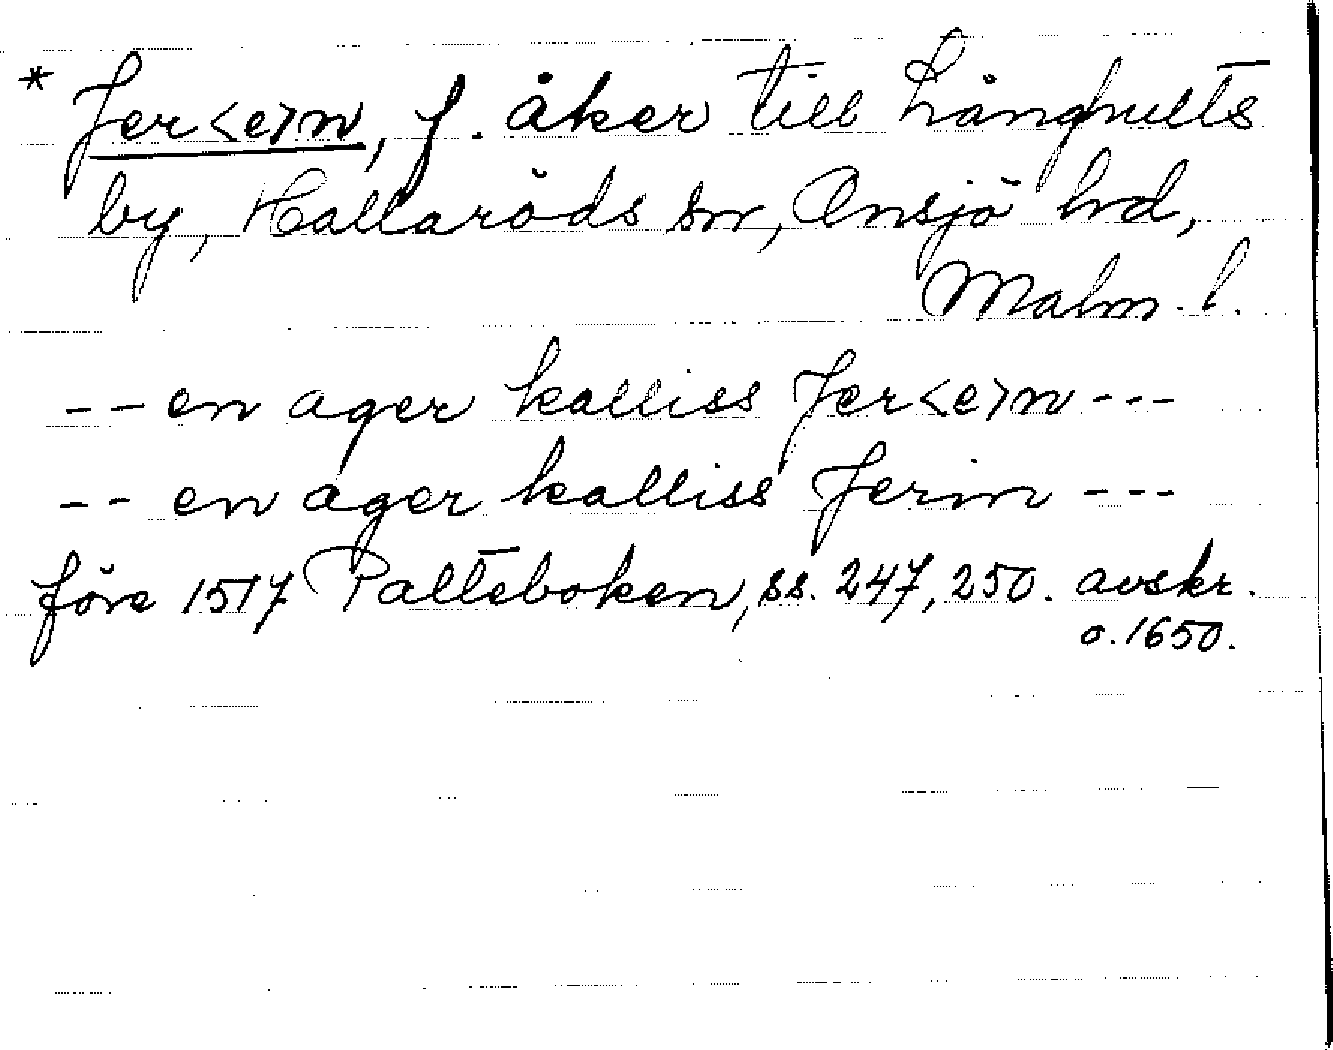 * Jer<e>n, f. åker till Långhults
by, Hallaröds sn, Onsjö hd,
Malm. l.
-- en ager kalliss Jer<e>n ---
-- en ager kalliss Jerin ---
före 1517 Palteboken, ss. 247, 250. avskr.
o. 1650.